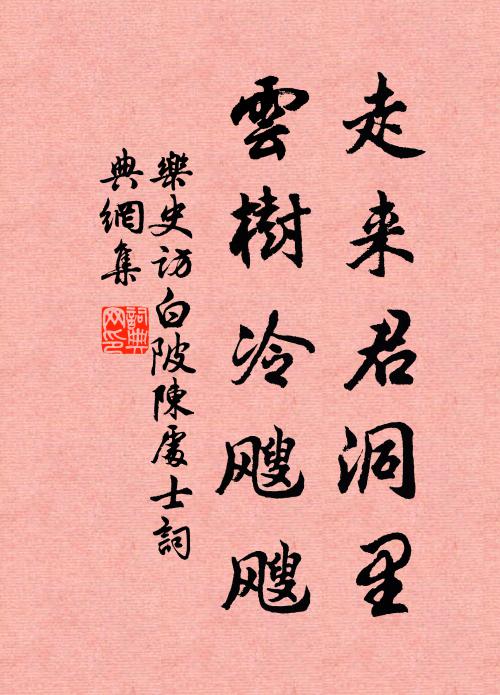 走来君洞里
雲樹冷飕飕
樂史访白陂陳處士詞
典網集
詞典
网印